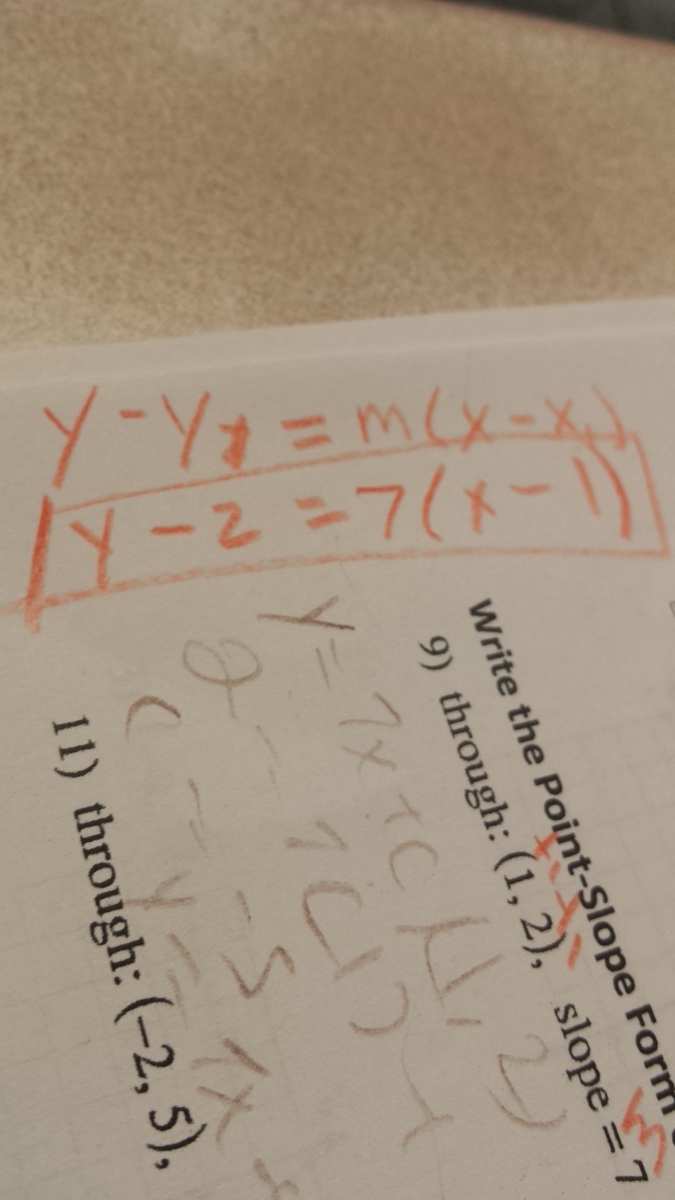 y - y1 = m(x - x1)
y - 2 = 7(x - 1)
Write the Point-Slope Form
9) through: (1, 2), slope = 7
x1 y1 m
y = 7x + c (1, 2)
2 = 7(1) +
c = -5
y = 7x
11) through: (−2, 5),